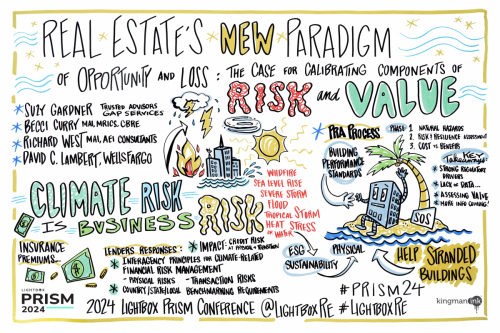 REAL ESTATE'S NEW PARADIGM
OF OPPORTUNITY AND LOSS: THE CASE FOR CALIBRATING COMPONENTS OF
RISK AND VALUE
* SUZY GARDNER TRUSTED ADVISORS
GAP SERVICES
* BECCI CURRY MAI, MRICS, CBRE
* RICHARD WEST MAI, AEI CONSULTANTS
* DAVID C. LAMBERT, WELLS FARGO
CLIMATE RISK
IS BUSINESS RISK
WILDFIRE
SEA LEVEL RISE
SEVERE STORM
FLOOD
TROPICAL STORM
HEAT STRESS
OR WATER
* PRA PROCESS
PHASE 1 NATURAL HAZARDS
2. RISK & RESILIENCE ASSESSMENT
3. COST VS BENEFITS
BUILDING
PERFORMANCE
STANDARDS
KEY
TAKEAWAYS
* STRONG REGULATORY
DRIVERS
* LACK OF DATA...
* ASSESSING VALUE
* MORE INFO COMING!
SOS
INSURANCE
PREMIUMS...
LENDERS RESPONSES:
* IMPACT: CREDIT RISK
AT PHYSICAL + TRANSITION
* INTERAGENCY PRINCIPLES FOR CLIMATE-RELATED
FINANCIAL RISK MANAGEMENT
- PHYSICAL RISKS - TRANSACTION RISKS
* COUNTRY/STATE/LOCAL BENCHMARKING REQUIREMENTS
ESG
SUSTAINABILITY
PHYSICAL
HELP STRANDED
BUILDINGS
LIGHTBOX
PRISM
2024
#PRISM24
2024 LIGHTBOX PRISM CONFERENCE @LIGHTBOXRE #LIGHTBOXRE
kingmanink